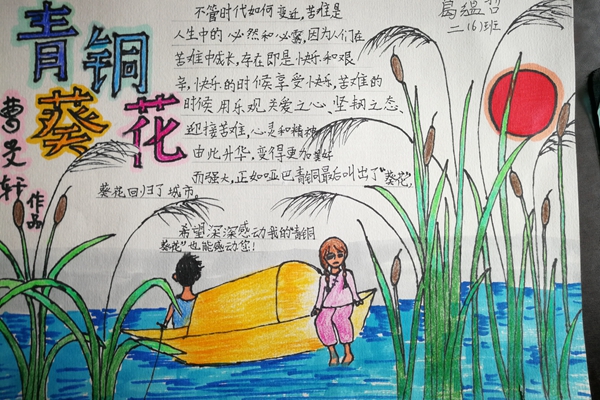 青铜
葵花
曹文轩
作品
二(6)班
不管时代如何变迁,苦难是
人生中的必然和必需,因为人们在
苦难中成长,存在即是快乐和艰
辛,快乐的时候享受快乐,苦难的
时候用乐观关爱之心、坚韧之态、
迎接苦难,心灵和精神
由此升华,变得更加美好
而强大,正如哑巴青铜最后叫出了“葵花”,
葵花回归了城市。
希望深深感动我的“青铜
葵花”也能感动您!